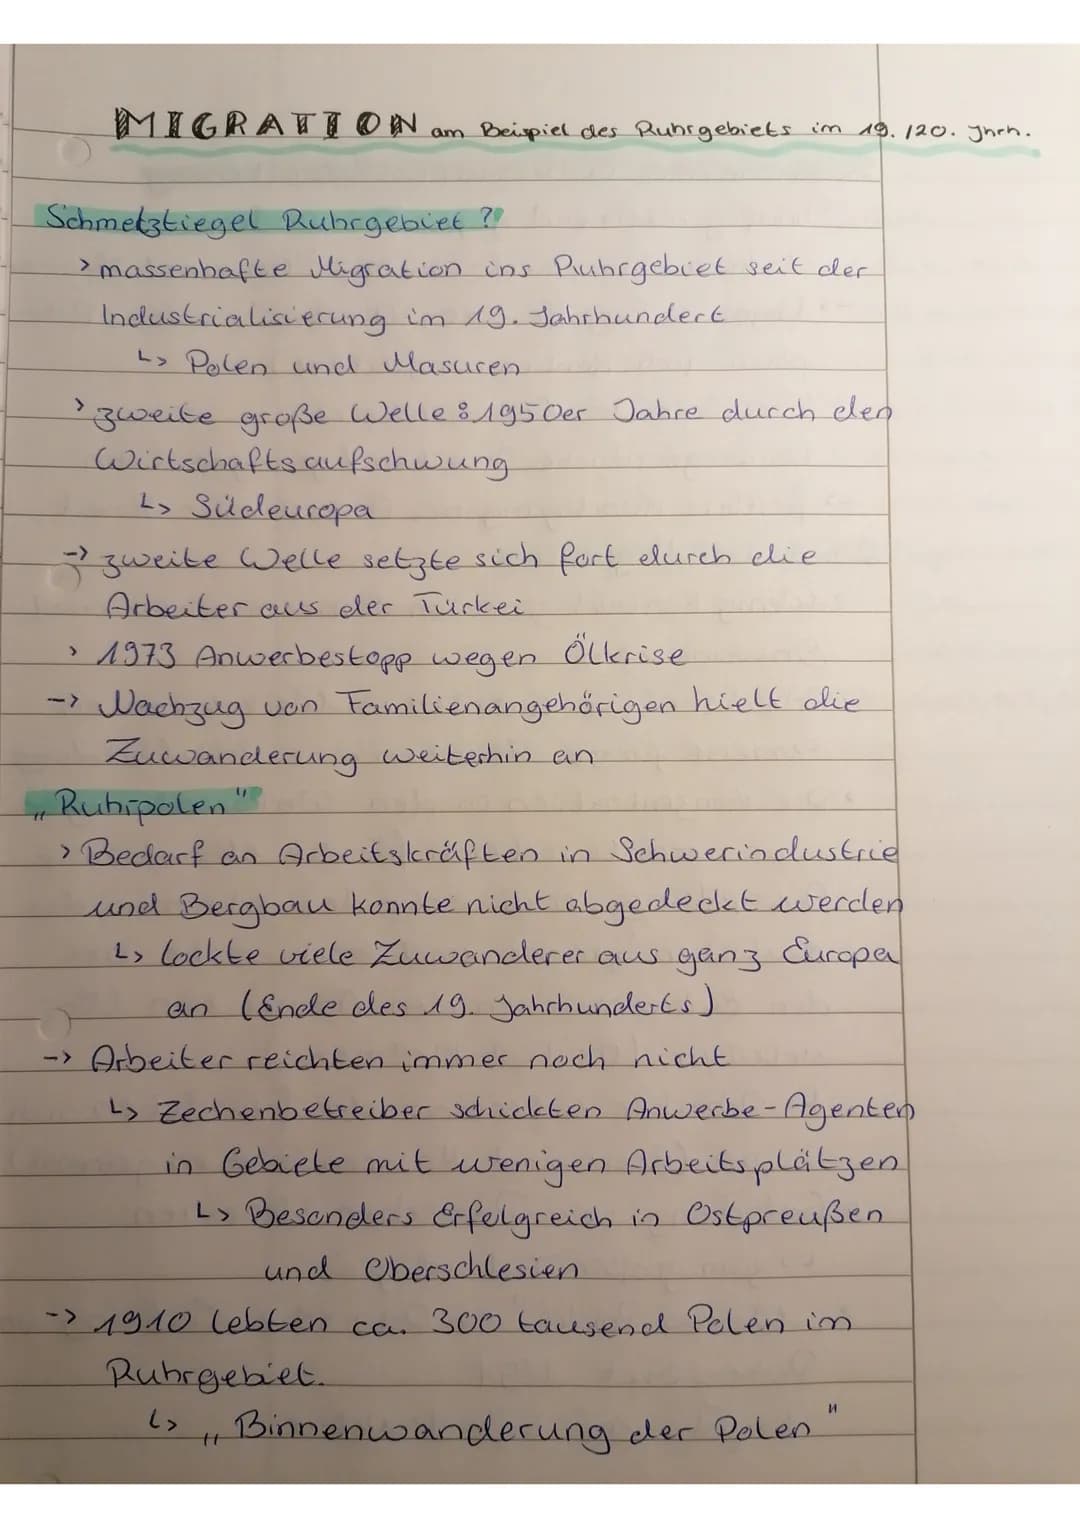 MIGRATION am Beispiel des Ruhrgebiets im 19./20. Jhrh.
Schmetztiegel Ruhrgebiet?
> massenhafte Migration ins Ruhrgebiet seit der
Industrialisierung im 19. Jahrhundert
↳ Polen und Masuren
> zweite große Welle: 1950er Jahre durch den
Wirtschaftsaufschwung
↳ Südeuropa
-> zweite Welle setzte sich fort durch die
Arbeiter aus der Türkei
> 1973 Anwerbestopp wegen Ölkrise
-> Nachzug von Familienangehörigen hielt die
Zuwanderung weiterhin an
„Ruhrpolen"
> Bedarf an Arbeitskräften in Schwerindustrie
und Bergbau konnte nicht abgedeckt werden
↳ lockte viele Zuwanderer aus ganz Europa
an (Ende des 19. Jahrhunderts)
-> Arbeiter reichten immer noch nicht
↳ Zechenbetreiber schickten Anwerbe-Agenten
in Gebiete mit wenigen Arbeitsplätzen
↳ Besonders Erfolgreich in Ostpreußen
und Oberschlesien
-> 1910 lebten ca. 300 tausend Polen im
Ruhrgebiet.
↳ „Binnenwanderung der Polen"